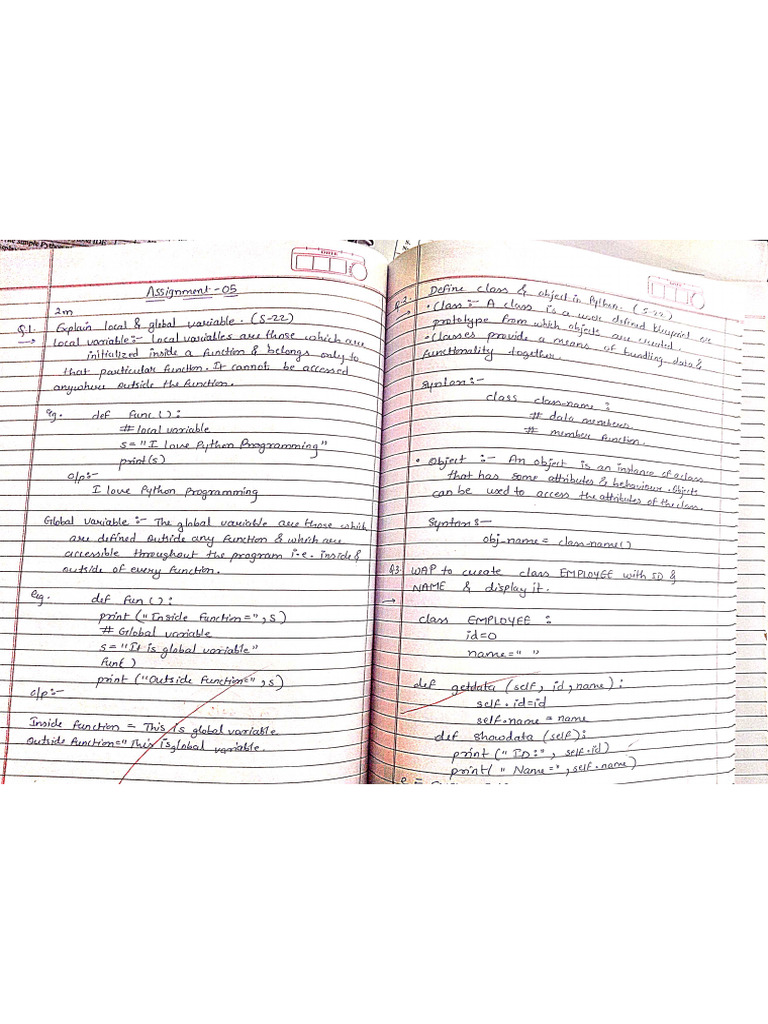 Assignment - 05
2m
Q.1. Explain local & global variable. (S-22)
→ local variable:- local variables are those which are
initialized inside a function & belongs only to
that particular function. It cannot be accessed
anywhere outside the function.
eg. def func():
# local variable
s = "I love Python Programming"
print(s)
o/p:-
I love Python programming
Global variable :- The global variable are those which
are defined outside any function & which are
accessible throughout the program i.e. inside &
outside of every function.
eg. def fun():
print("Inside function=", s)
# Global variable
s = "It is global variable"
fun()
print("Outside function=", s)
o/p:-
Inside function = This is global variable
Outside function="This is global variable.
Q.2. Define class & object in Python. (S-22)
→ • Class:- A class is a user defined blueprint or
prototype from which objects are created.
• Classes provide a means of bundling data &
functionality together.
Syntax:-
class class-name :
# data members
# member function.
• Object :- An object is an instance of a class
that has some attributes & behaviour. Objects
can be used to access the attributes of the class.
Syntax:-
obj-name = class-name()
Q3. WAP to create class EMPLOYEE with ID &
NAME & display it.
→
class EMPLOYEE :
id=0
name=" "
def getdata (self, id, name):
self.id=id
self.name = name
def showdata (self):
print("ID:", self.id)
print(" Name=", self.name)